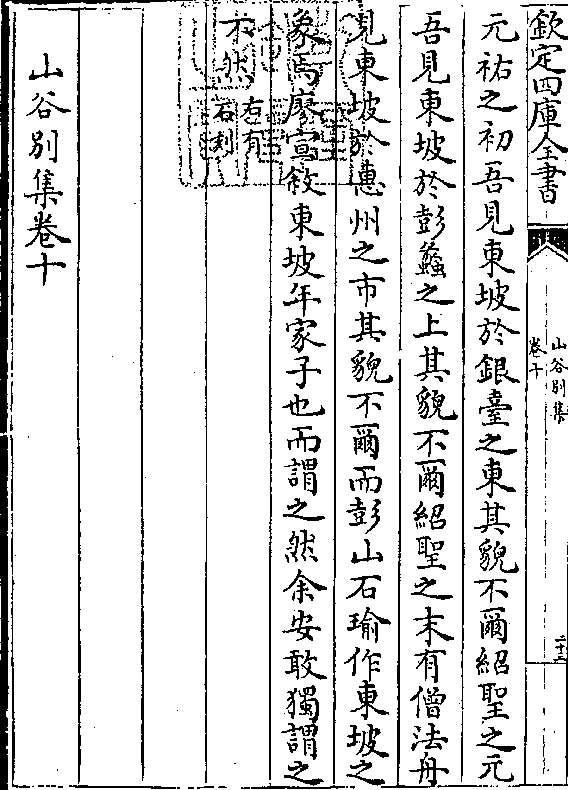 欽定四庫全書
山谷別集
卷十
二十三
元祐之初吾見東坡於銀臺之東其貌不爾紹聖之元
吾見東坡於彭蠡之上其貌不爾紹聖之末有僧法舟
見東坡於惠州之市其貌不爾而彭山石瑜作東坡之
象焉廖宣敘東坡年家子也而謂之然余安敢獨謂之
不然
右有
石刻
山谷別集卷十